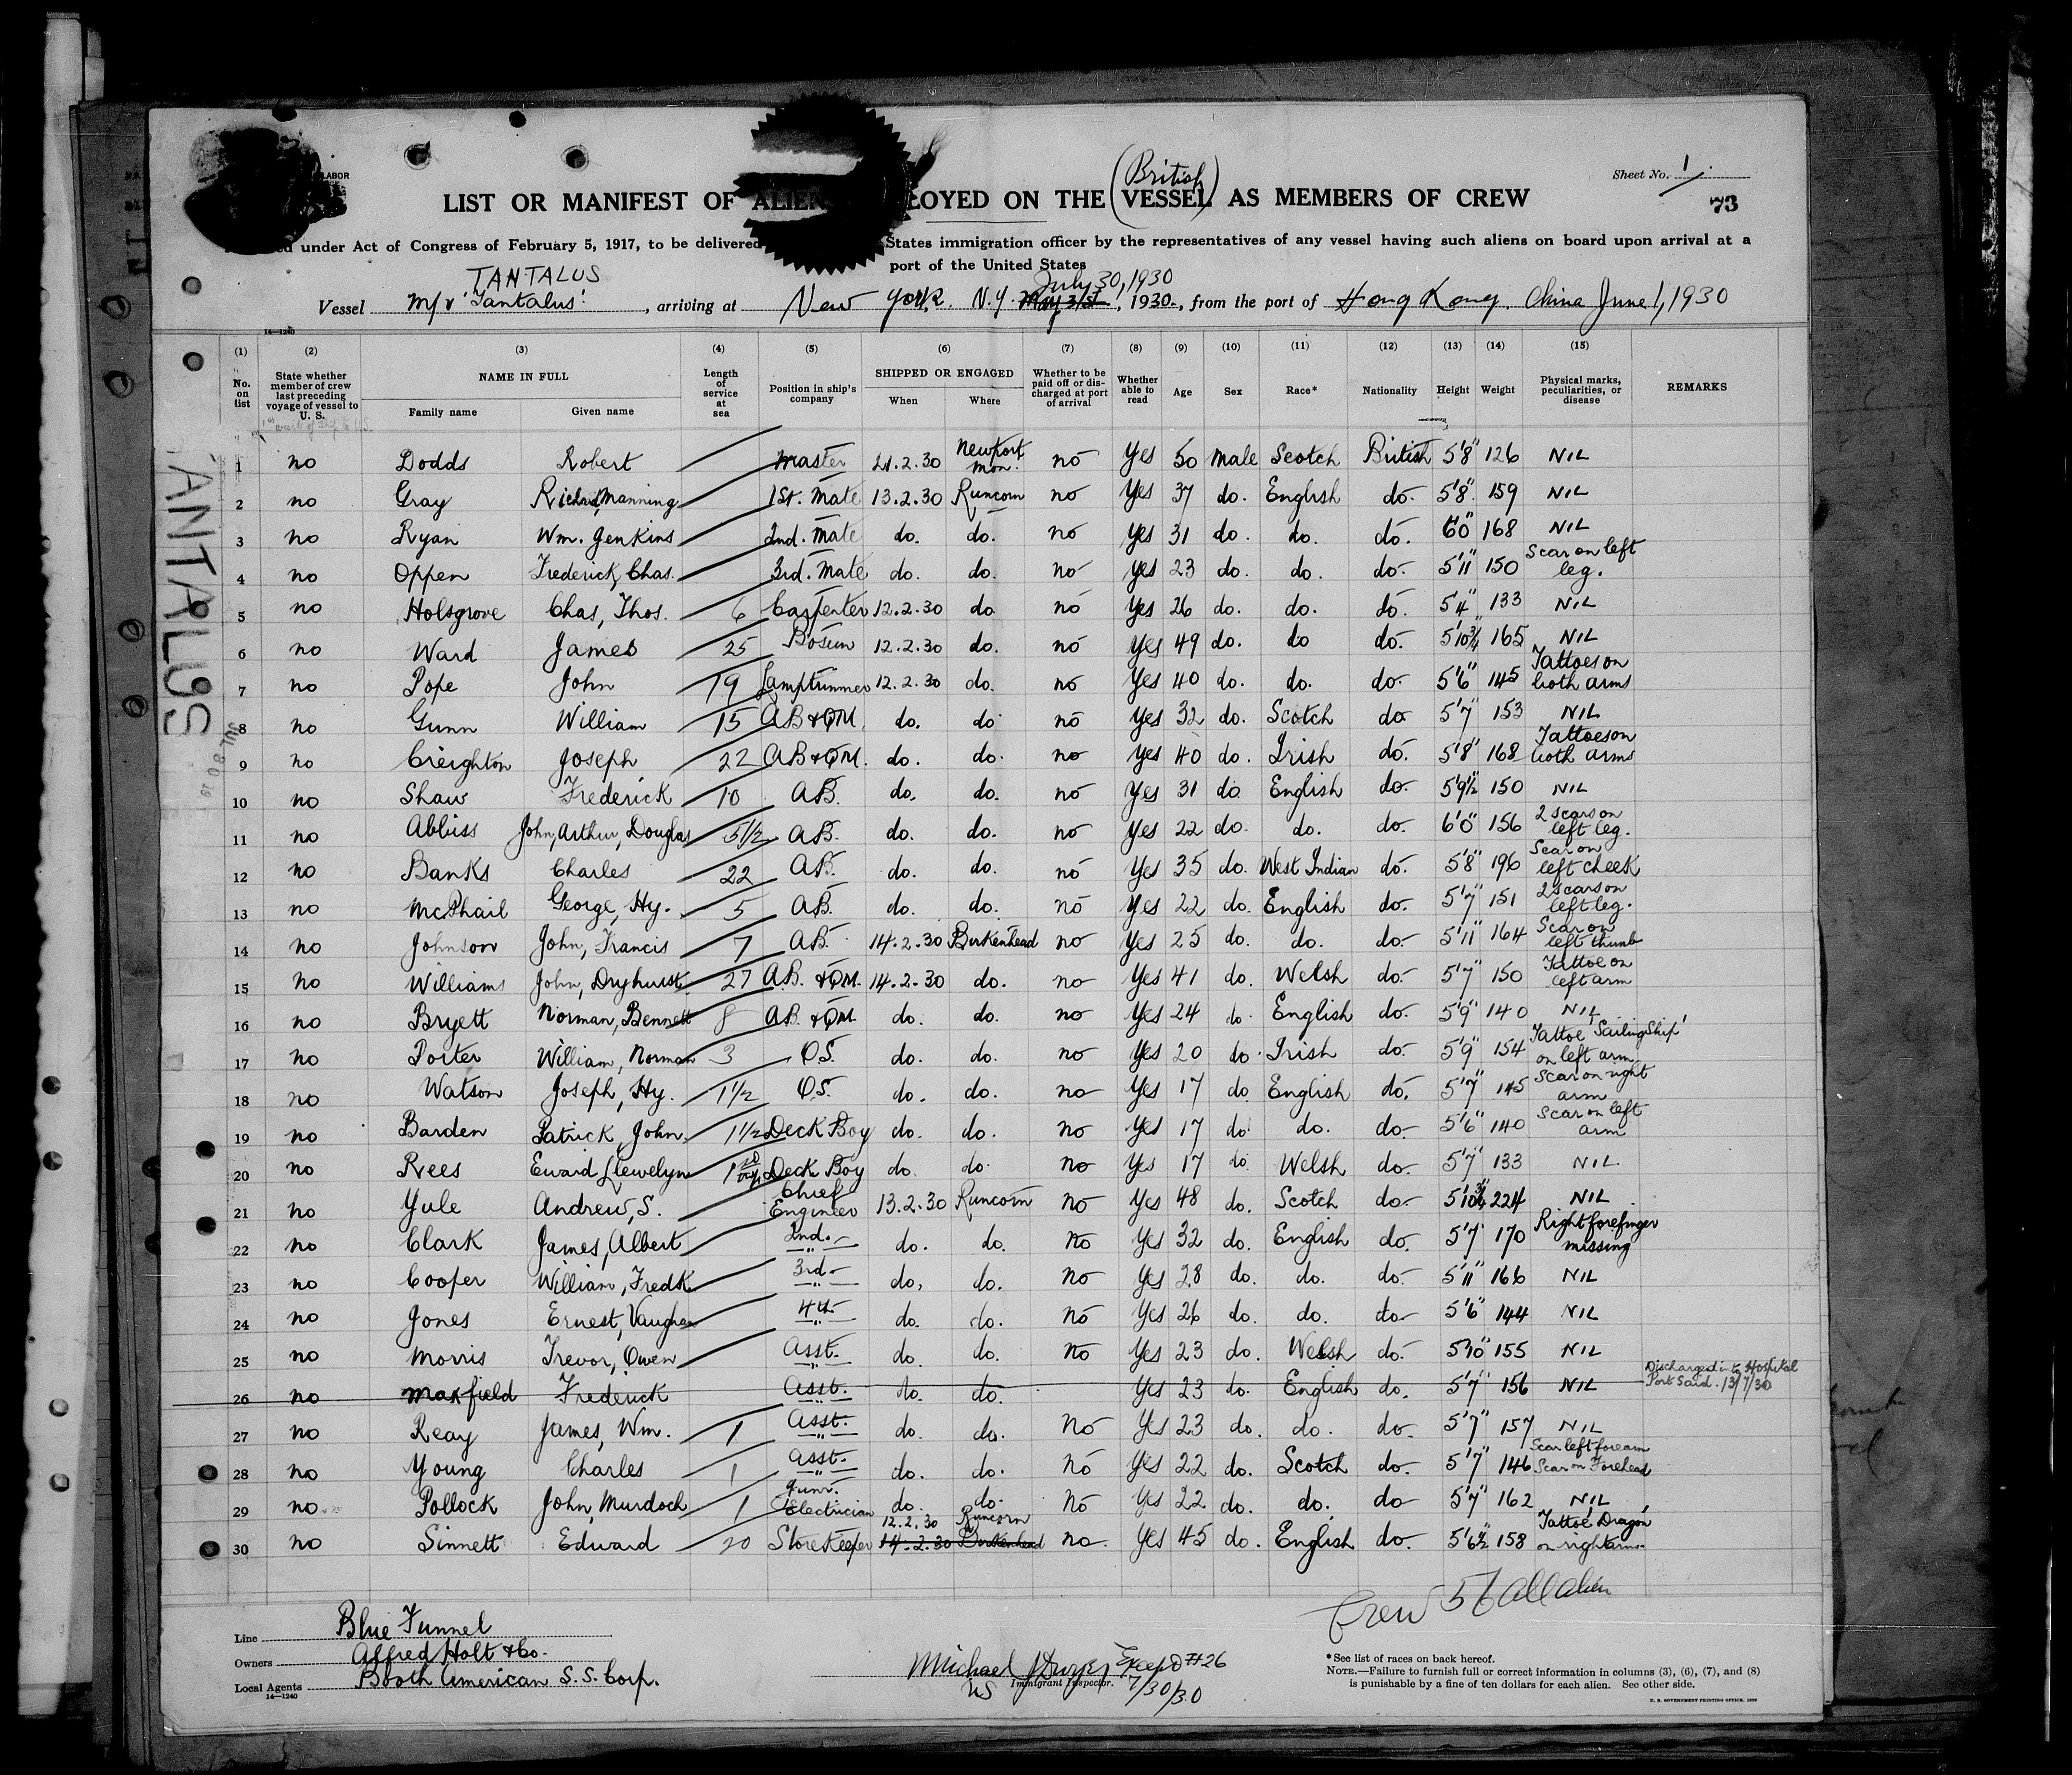 LABOR
Sheet No. 1.
(British)
LIST OR MANIFEST OF ALIEN LOYED ON THE VESSEL AS MEMBERS OF CREW
73
under Act of Congress of February 5, 1917, to be delivered States immigration officer by the representatives of any vessel having such aliens on board upon arrival at a
port of the United States
TANTALUS July 30, 1930
Vessel M/V "Tantalus", arriving at New York, N.Y. May 31st, 1930, from the port of Hong Kong, China June 1, 1930
14—1240
(1) (2) (3) (4) (5) (6) (7) (8) (9) (10) (11) (12) (13) (14) (15)
No. on list State whether member of crew last preceding voyage of vessel to U. S. NAME IN FULL Family name Given name Length of service at sea Position in ship's company SHIPPED OR ENGAGED When Where Whether to be paid off or discharged at port of arrival Whether able to read Age Sex Race* Nationality Height Weight Physical marks, peculiarities, or disease REMARKS
1 no Dodds Robert Master 21.2.30 Newport Mon. no Yes 50 Male Scotch British 5'8" 126 NIL
2 no Gray Richard, Manning 1st. Mate 13.2.30 Runcorn no Yes 37 do. English do. 5'8" 159 NIL
3 no Ryan Wm. Jenkins 2nd. Mate do. do. no Yes 31 do. do. do. 6'0" 168 NIL
4 no Oppen Frederick, Chas. 3rd. Mate do. do. no Yes 23 do. do. do. 5'11" 150 Scar on left leg.
5 no Holsgrove Chas, Thos. 6 Carpenter 12.2.30 do no Yes 26 do. do. do. 5'4" 133 NIL
6 no Ward James 25 Bosun 12.2.30 do. no Yes 49 do. do do. 5'10¾" 165 NIL
7 no Pope John 19 Lamptrimmer 12.2.30 do. no Yes 40 do. do. do. 5'6" 145 Tattoes on both arms
8 no Gunn William 15 AB & QM. do. do. no Yes 32 do. Scotch do 5'7" 153 NIL
9 no Creighton Joseph 22 AB & QM. do. do. no Yes 40 do. Irish do. 5'8" 168 Tattoes on both arms
10 no Shaw Frederick 10 AB. do. do. no Yes 31 do English do. 5'9½" 150 NIL
11 no Abbiss John, Arthur, Douglas 5½ AB. do. do. no Yes 22 do. do. do. 6'0" 156 2 scars on left leg.
12 no Banks Charles 22 AB. do. do. no Yes 35 do. West Indian do. 5'8" 196 Scar on left cheek
13 no McPhail George, Hy. 5 AB. do. do. no Yes 22 do. English do. 5'7" 151 2 scars on left leg.
14 no Johnson John, Francis 7 AB. 14.2.30 Birkenhead no Yes 25 do. do. do. 5'11" 164 Scar on left thumb
15 no Williams John, Dryhurst 27 AB. & QM. 14.2.30 do. no Yes 41 do. Welsh do. 5'7" 150 Tattoe on left arm
16 no Bryett Norman, Bennett 8 AB. & QM. do. do. no Yes 24 do. English do. 5'9" 140 NIL
17 no Porter William, Norman 3 O.S. do. do. no Yes 20 do. Irish do. 5'9" 154 Tattoe 'Sailing Ship' on left arm
18 no Watson Joseph, Hy. 1½ O.S. do. do. no Yes 17 do English do. 5'7" 145 Scar on right arm
19 no Barden Patrick, John. 1½ Deck Boy do. do. no Yes 17 do. do. do. 5'6" 140 Scar on left arm
20 no Rees Eward Llewelyn 1st voy. Deck Boy do. do. no Yes 17 do Welsh do. 5'7" 133 NIL.
21 no Yule Andrew, S. Chief Engineer 13.2.30 Runcorn no Yes 48 do. Scotch do. 5'10¾" 224 NIL
22 no Clark James, Albert 2nd. —"— do. do. no Yes 32 do. English do. 5'7" 170 Right forefinger missing
23 no Cooper William, Fredk 3rd —"— do. do. no Yes 28 do. do. do. 5'11" 166 NIL
24 no Jones Ernest, Vaughan 4th —"— do. do. no Yes 26 do. do. do 5'6" 144 NIL
25 no Morris Trevor, Owen Asst. —"— do. do. no Yes 23 do. Welsh do. 5'10" 155 NIL
26 no Maxfield Frederick Asst. —"— do. do. Yes 23 do. English do. 5'7" 156 NIL Discharged into Hospital Port Said. 13/7/30
27 no Reay James, Wm. 1 Asst. —"— do. do. no Yes 23 do. do. do. 5'7" 157 NIL
28 no Young Charles 1 Asst. —"— do. do. no Yes 22 do. Scotch do. 5'7" 146 Scar left forearm Scar on Forehead
29 no Pollock John, Murdoch 1 Junr. Electrician do. do. no Yes 22 do. do. do 5'7" 162 NIL
30 no Sinnett Edward 20 Storekeeper 12.2.30 Runcorn 14.2.30 Birkenhead no. Yes 45 do. English do. 5'6½" 158 Tattoe Dragon on right arm.
TANTALUS
Crew 56 all alien
Line Blue Funnel
Owners Alfred Holt & Co.
Local Agents Booth American S.S. Corp.
14—1240
Michael J Dwyer Except #26
Immigrant Inspector.
7/30/30
*See list of races on back hereof.
NOTE.—Failure to furnish full or correct information in columns (3), (6), (7), and (8)
is punishable by a fine of ten dollars for each alien. See other side.
U. S. GOVERNMENT PRINTING OFFICE: 1929